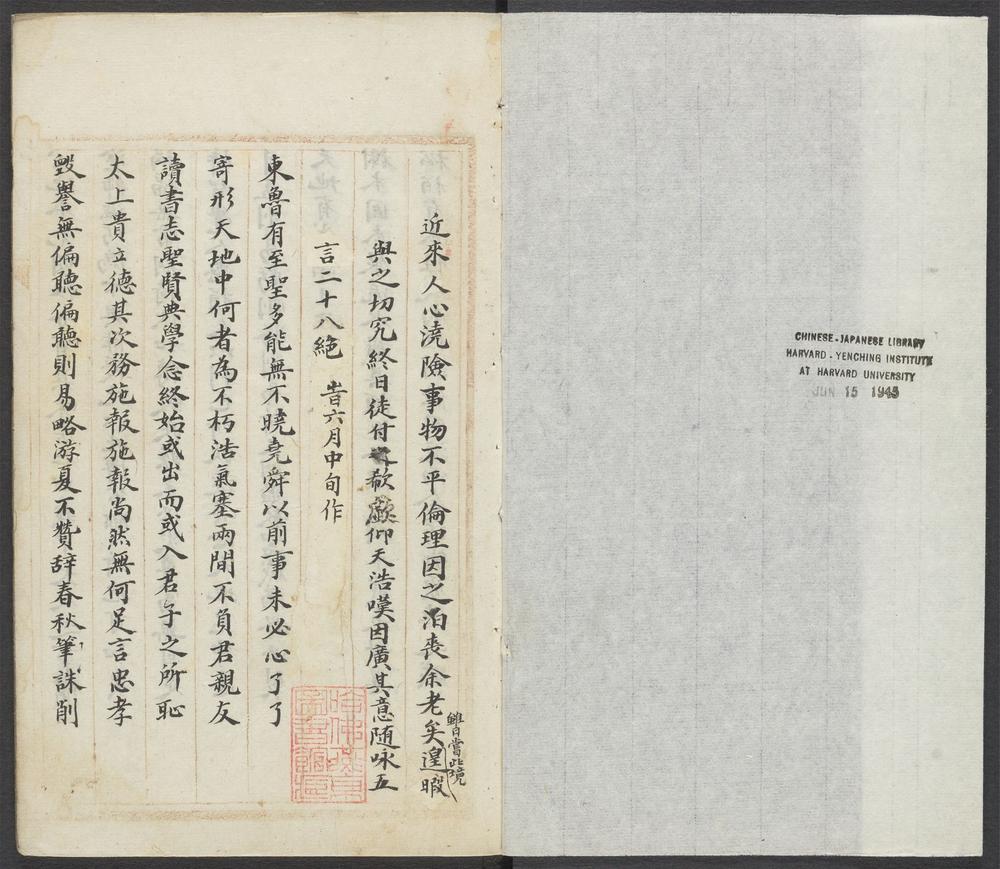 近來人心澆險事物不平倫理因之泊喪余老矣遑暇
雖當此境
與之切究終日徒付之欷歔仰天浩嘆因廣其意随咏五
言二十八絶 旹六月中旬作
東魯有至聖多能無不曉堯舜以前事未必心了了
寄形天地中何者為不朽浩氣塞兩間不負君親友
讀書志聖賢典學念終始或出而或入君子之所恥
太上貴立德其次務施報施報尚然無何足言忠孝
毁譽無偏聴偏聴則易略游夏不贊辞春秋筆誅削
CHINESE-JAPANESE LIBRARY
HARVARD-YENCHING INSTITUTE
AT HARVARD UNIVERSITY
JUN 15 1945